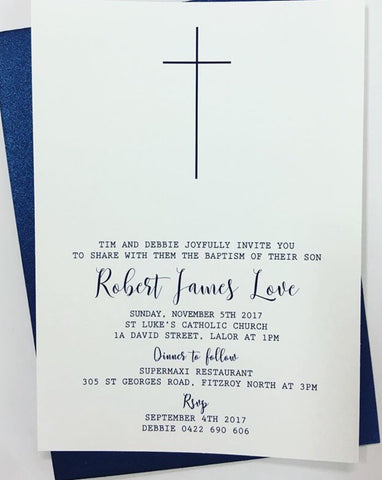 TIM AND DEBBIE JOYFULLY INVITE YOU
TO SHARE WITH THEM THE BAPTISM OF THEIR SON
Robert James Love
SUNDAY, NOVEMBER 5TH 2017
ST LUKE'S CATHOLIC CHURCH
1A DAVID STREET, LALOR AT 1PM
Dinner to follow
SUPERMAXI RESTAURANT
305 ST GEORGES ROAD, FITZROY NORTH AT 3PM
Rsvp
SEPTEMBER 4TH 2017
DEBBIE 0422 690 606